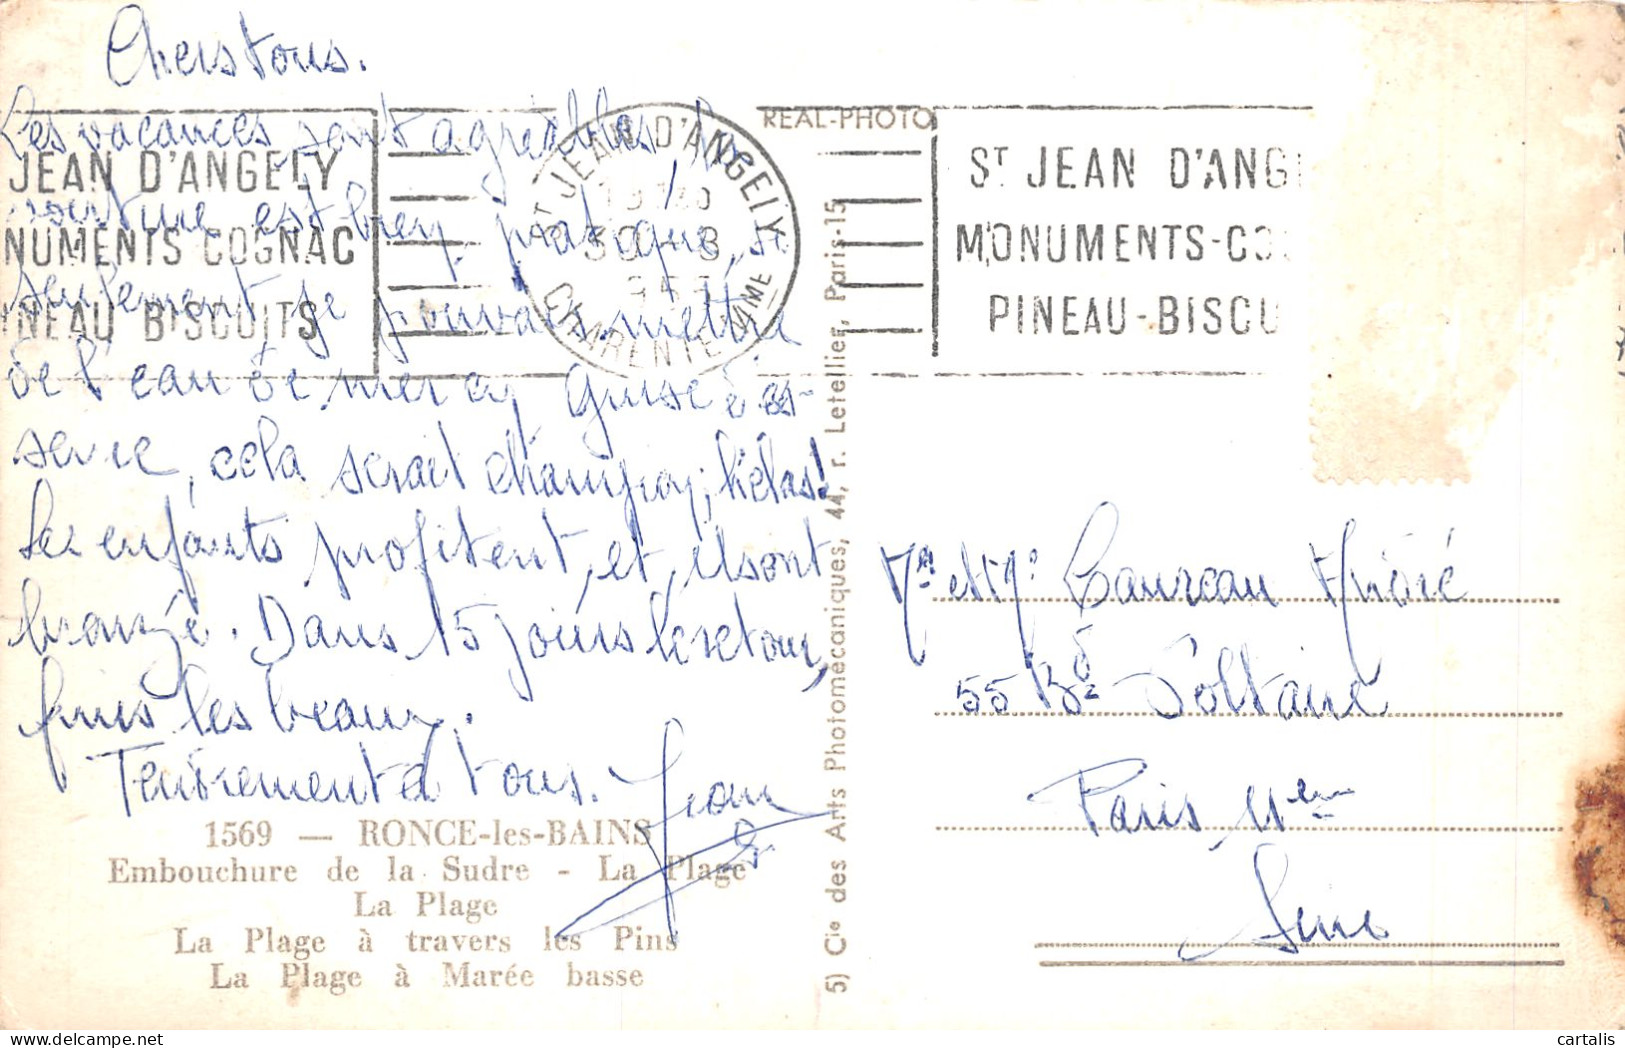 Chers tous.
Les vacances sont agréables, la
est brey, pratique, si
seulement je pouvais mettre
de l'eau de mer en guise d'es-
sence, cela serait champion, hélas!
Les enfants profitent, et, ils sont
bronzé. Dans 15 jours le retour,
finis les beaux.
Tendrement à tous. Jean
JEAN D'ANGELY
NUMENTS COGNAC
INEAU BISCUITS
ST JEAN D'ANGELY
30 - 8
CHARENTE MME
REAL-PHOTO
ST JEAN D'ANG
MONUMENTS-CO
PINEAU-BISCU
5) Cie des Arts Photomécaniques, 44, r. Letellier, Paris-15
Mr et Me Laureau André
55 Bd Voltaire
Paris 11em
Seine
1569 — RONCE-les-BAINS
Embouchure de la Sudre - La Plage
La Plage
La Plage à travers les Pins
La Plage à Marée basse
cartalis